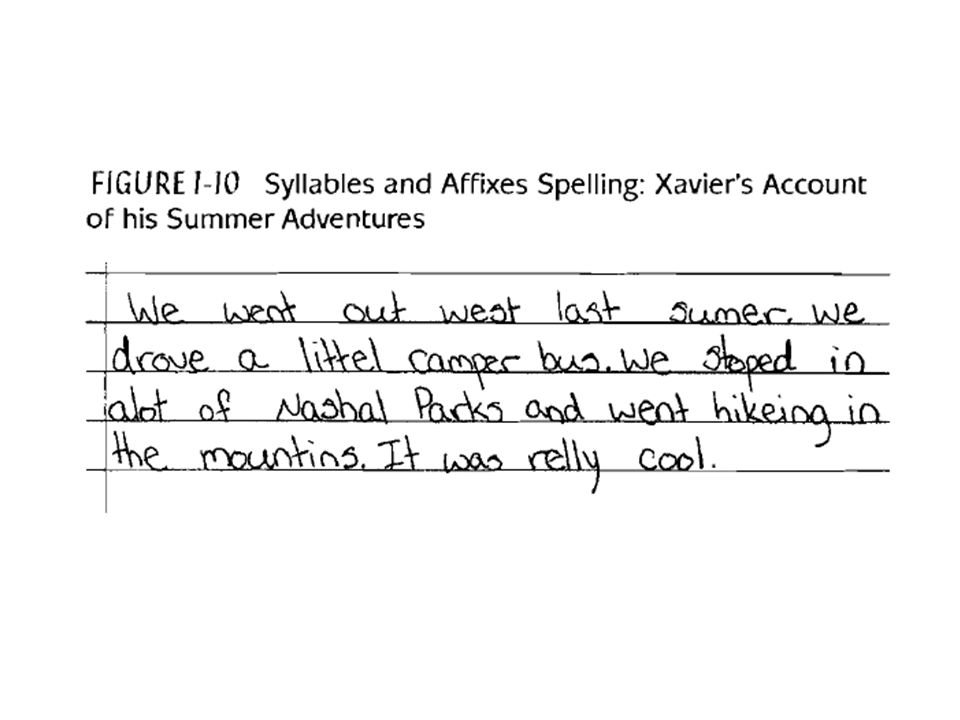 FIGURE 1-10 Syllables and Affixes Spelling: Xavier's Account
of his Summer Adventures
We went out west last sumer. we
drove a littel camper bus. We stoped in
alot of Nashal Parks and went hikeing in
the mountins. It was relly cool.